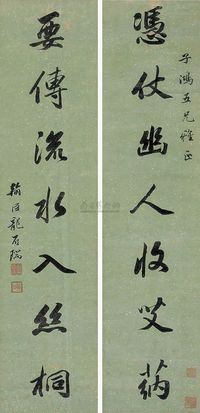 子鴻五兄雅正
憑仗幽人收艾蒳
要傳流水入絲桐
翰臣龍启瑞